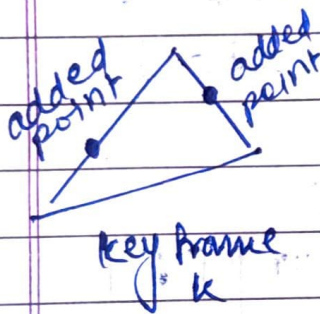 added
point
added
point
key frame
k